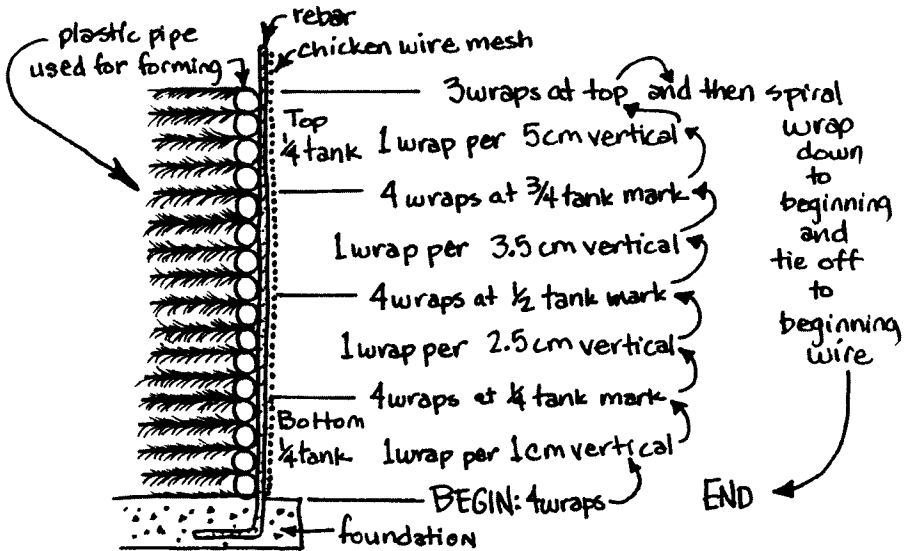 rebar
plastic pipe
used for forming
chicken wire mesh
3 wraps at top and then spiral
wrap
down
to
beginning
and
tie off
to
beginning
wire
END
Top
1/4 tank
1 wrap per 5cm vertical
4 wraps at 3/4 tank mark
1 wrap per 3.5 cm vertical
4 wraps at 1/2 tank mark
1 wrap per 2.5 cm vertical
4 wraps at 1/4 tank mark
Bottom
1/4 tank
1 wrap per 1cm vertical
BEGIN: 4 wraps
foundation